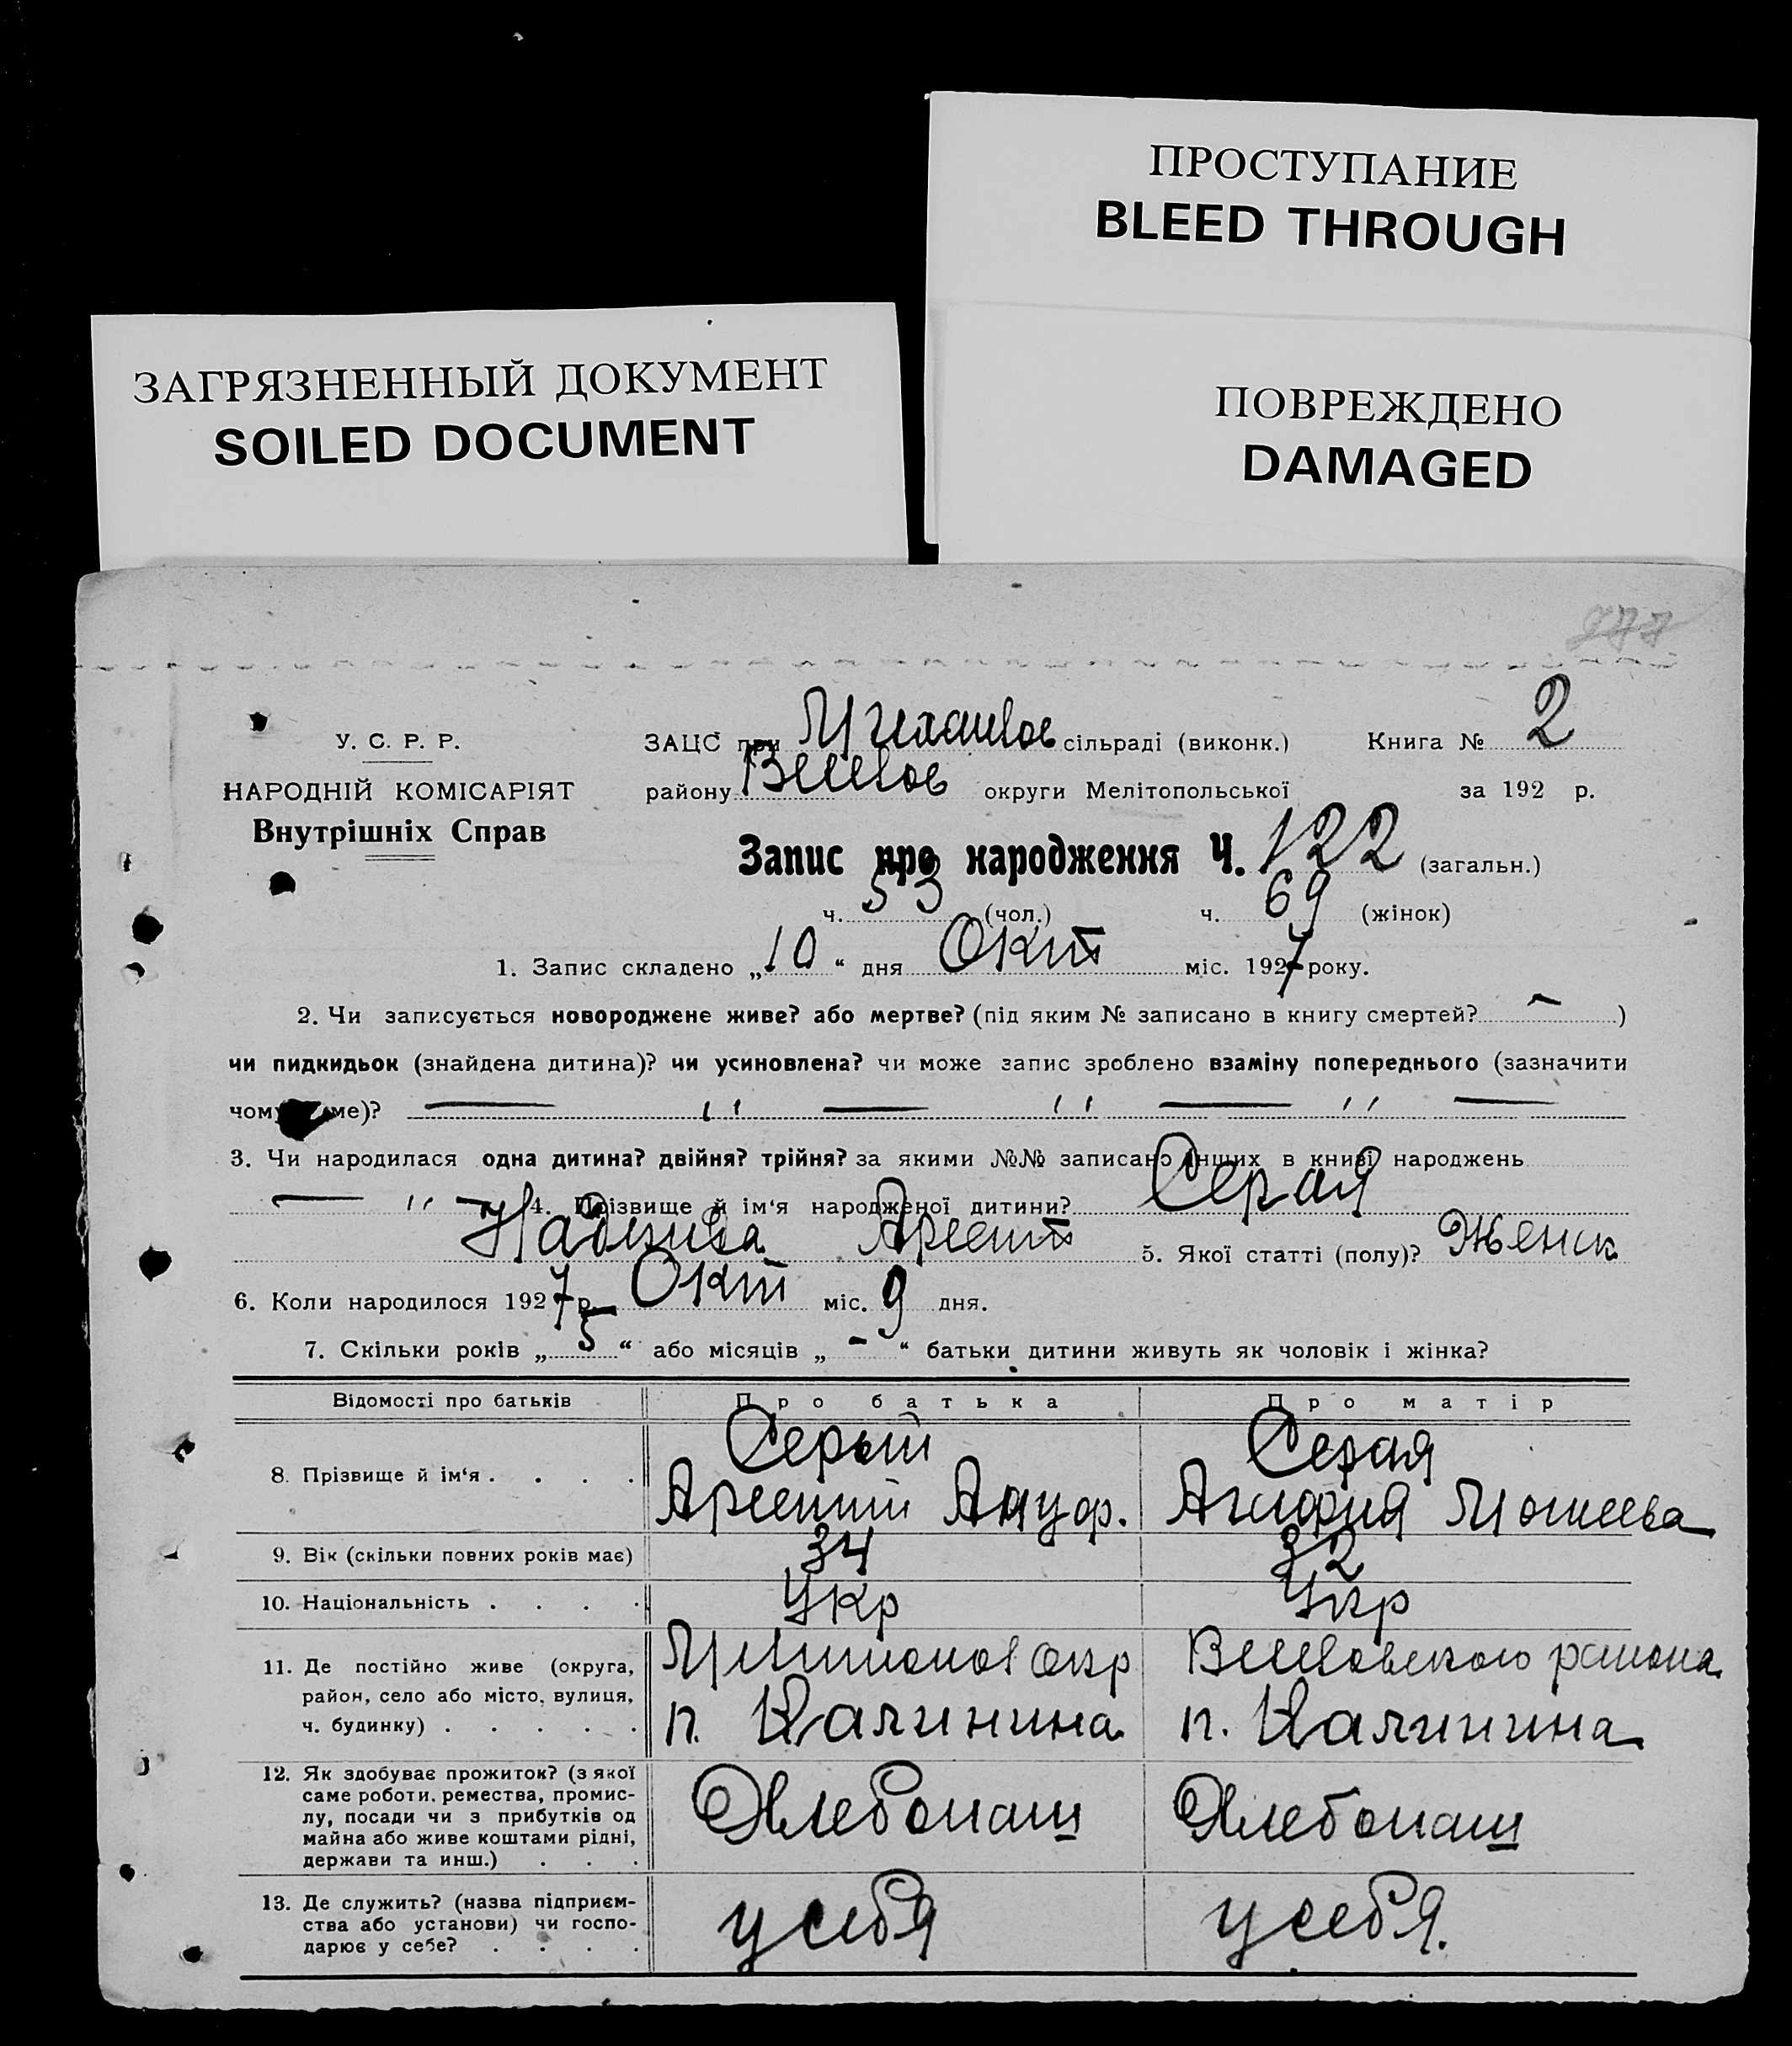 ПРОСТУПАНИЕ
BLEED THROUGH
ЗАГРЯЗНЕННЫЙ ДОКУМЕНТ
SOILED DOCUMENT
ПОВРЕЖДЕНО
DAMAGED
У. С. Р. Р.
НАРОДНІЙ КОМІСАРІЯТ
Внутрішніх Справ
ЗАЦС при Михайлов сільраді (виконк.) Книга № 2
району Веселов округи Мелітопольської за 192 р.
Запис про народження Ч. 122 (загальн.)
ч. 53 (чол.) ч. 69 (жінок)
1. Запис складено „10“ дня Окт міс. 1927 року.
2. Чи записується новороджене живе? або мертве? (під яким № записано в книгу смертей? — )
чи пидкидьок (знайдена дитина)? чи усиновлена? чи може запис зроблено взаміну попереднього (зазначити
чому ме)? — '' — '' — '' —
3. Чи народилася одна дитина? двійня? трійня? за якими №№ записано інших в книзі народжень
— '' — 4. Прізвище й ім‘я народженої дитини? Серая
Надежда Арсент 5. Якої статті (полу)? Женск
6. Коли народилося 1927 р. Окт міс. 9 дня.
7. Скільки років „5“ або місяців „-“ батьки дитини живуть як чоловік і жінка?
Відомості про батьків Про батька Про матір
8. Прізвище й ім‘я . . . . Серый Серая
Арсентий Ануф. Агафия Моисеева
9. Вік (скільки повних років має) 34 32
10. Національність . . . . Укр Укр
11. Де постійно живе (округа, район, село або місто, вулиця, ч. будинку) . . . . . Мелитопол окр Веселовского района
п. Калинина п. Калинина
12. Як здобуває прожиток? (з якої
саме роботи, ремества, промис-
лу, посади чи з прибутків од
майна або живе коштами рідні,
держави та инш.) . . . Хлебопаш Хлебопаш
13. Де служить? (назва підприєм-
ства або установи) чи госпо-
дарює у себе? . . . . у себя у себя.